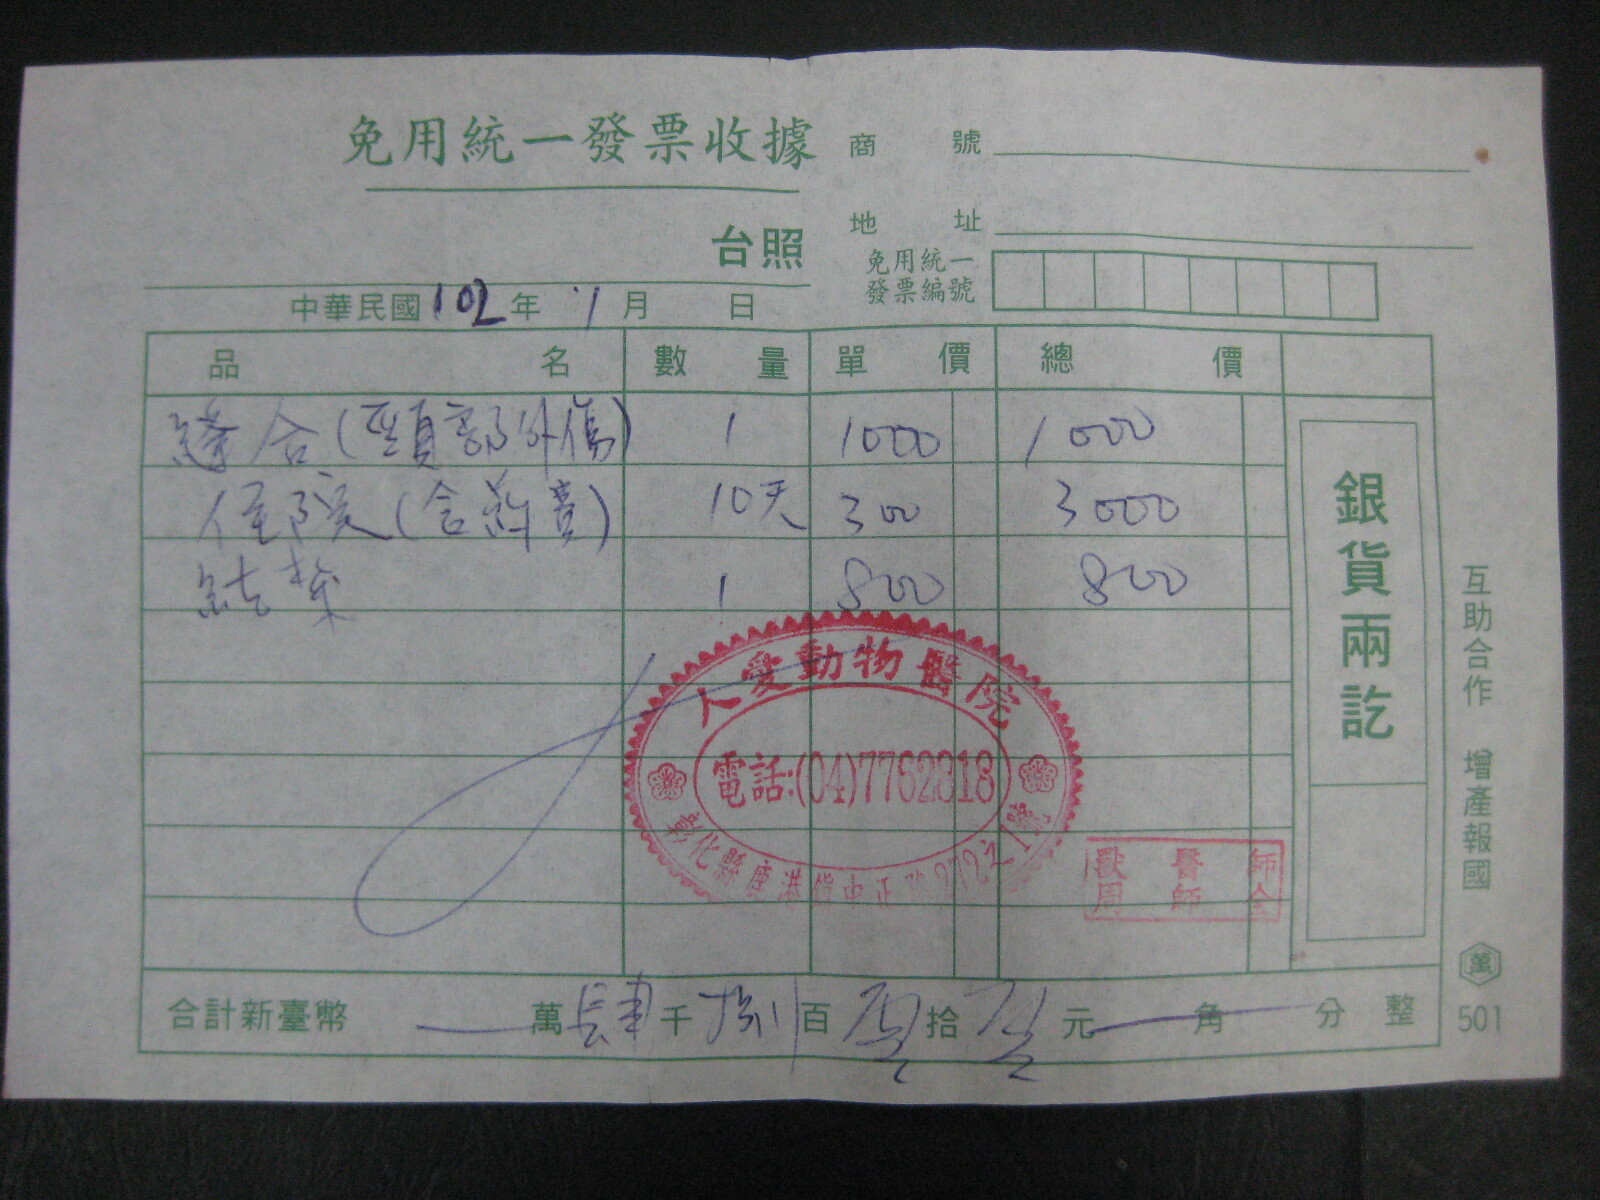 免用統一發票收據
商號
地址
台照
免用統一
發票編號
中華民國102年1月 日
品名 數量 單價 總價
縫合(頸部外傷) 1 1000 1000
住院(含葯費) 10天 300 3000
結紮 1 800 800
銀貨兩訖
人愛動物醫院
電話:(04)7762318
彰化縣鹿港鎮中正路
獸醫師
周師全
合計新臺幣 萬肆千捌百零拾零元 角 分 整
互助合作 增產報國
萬
501